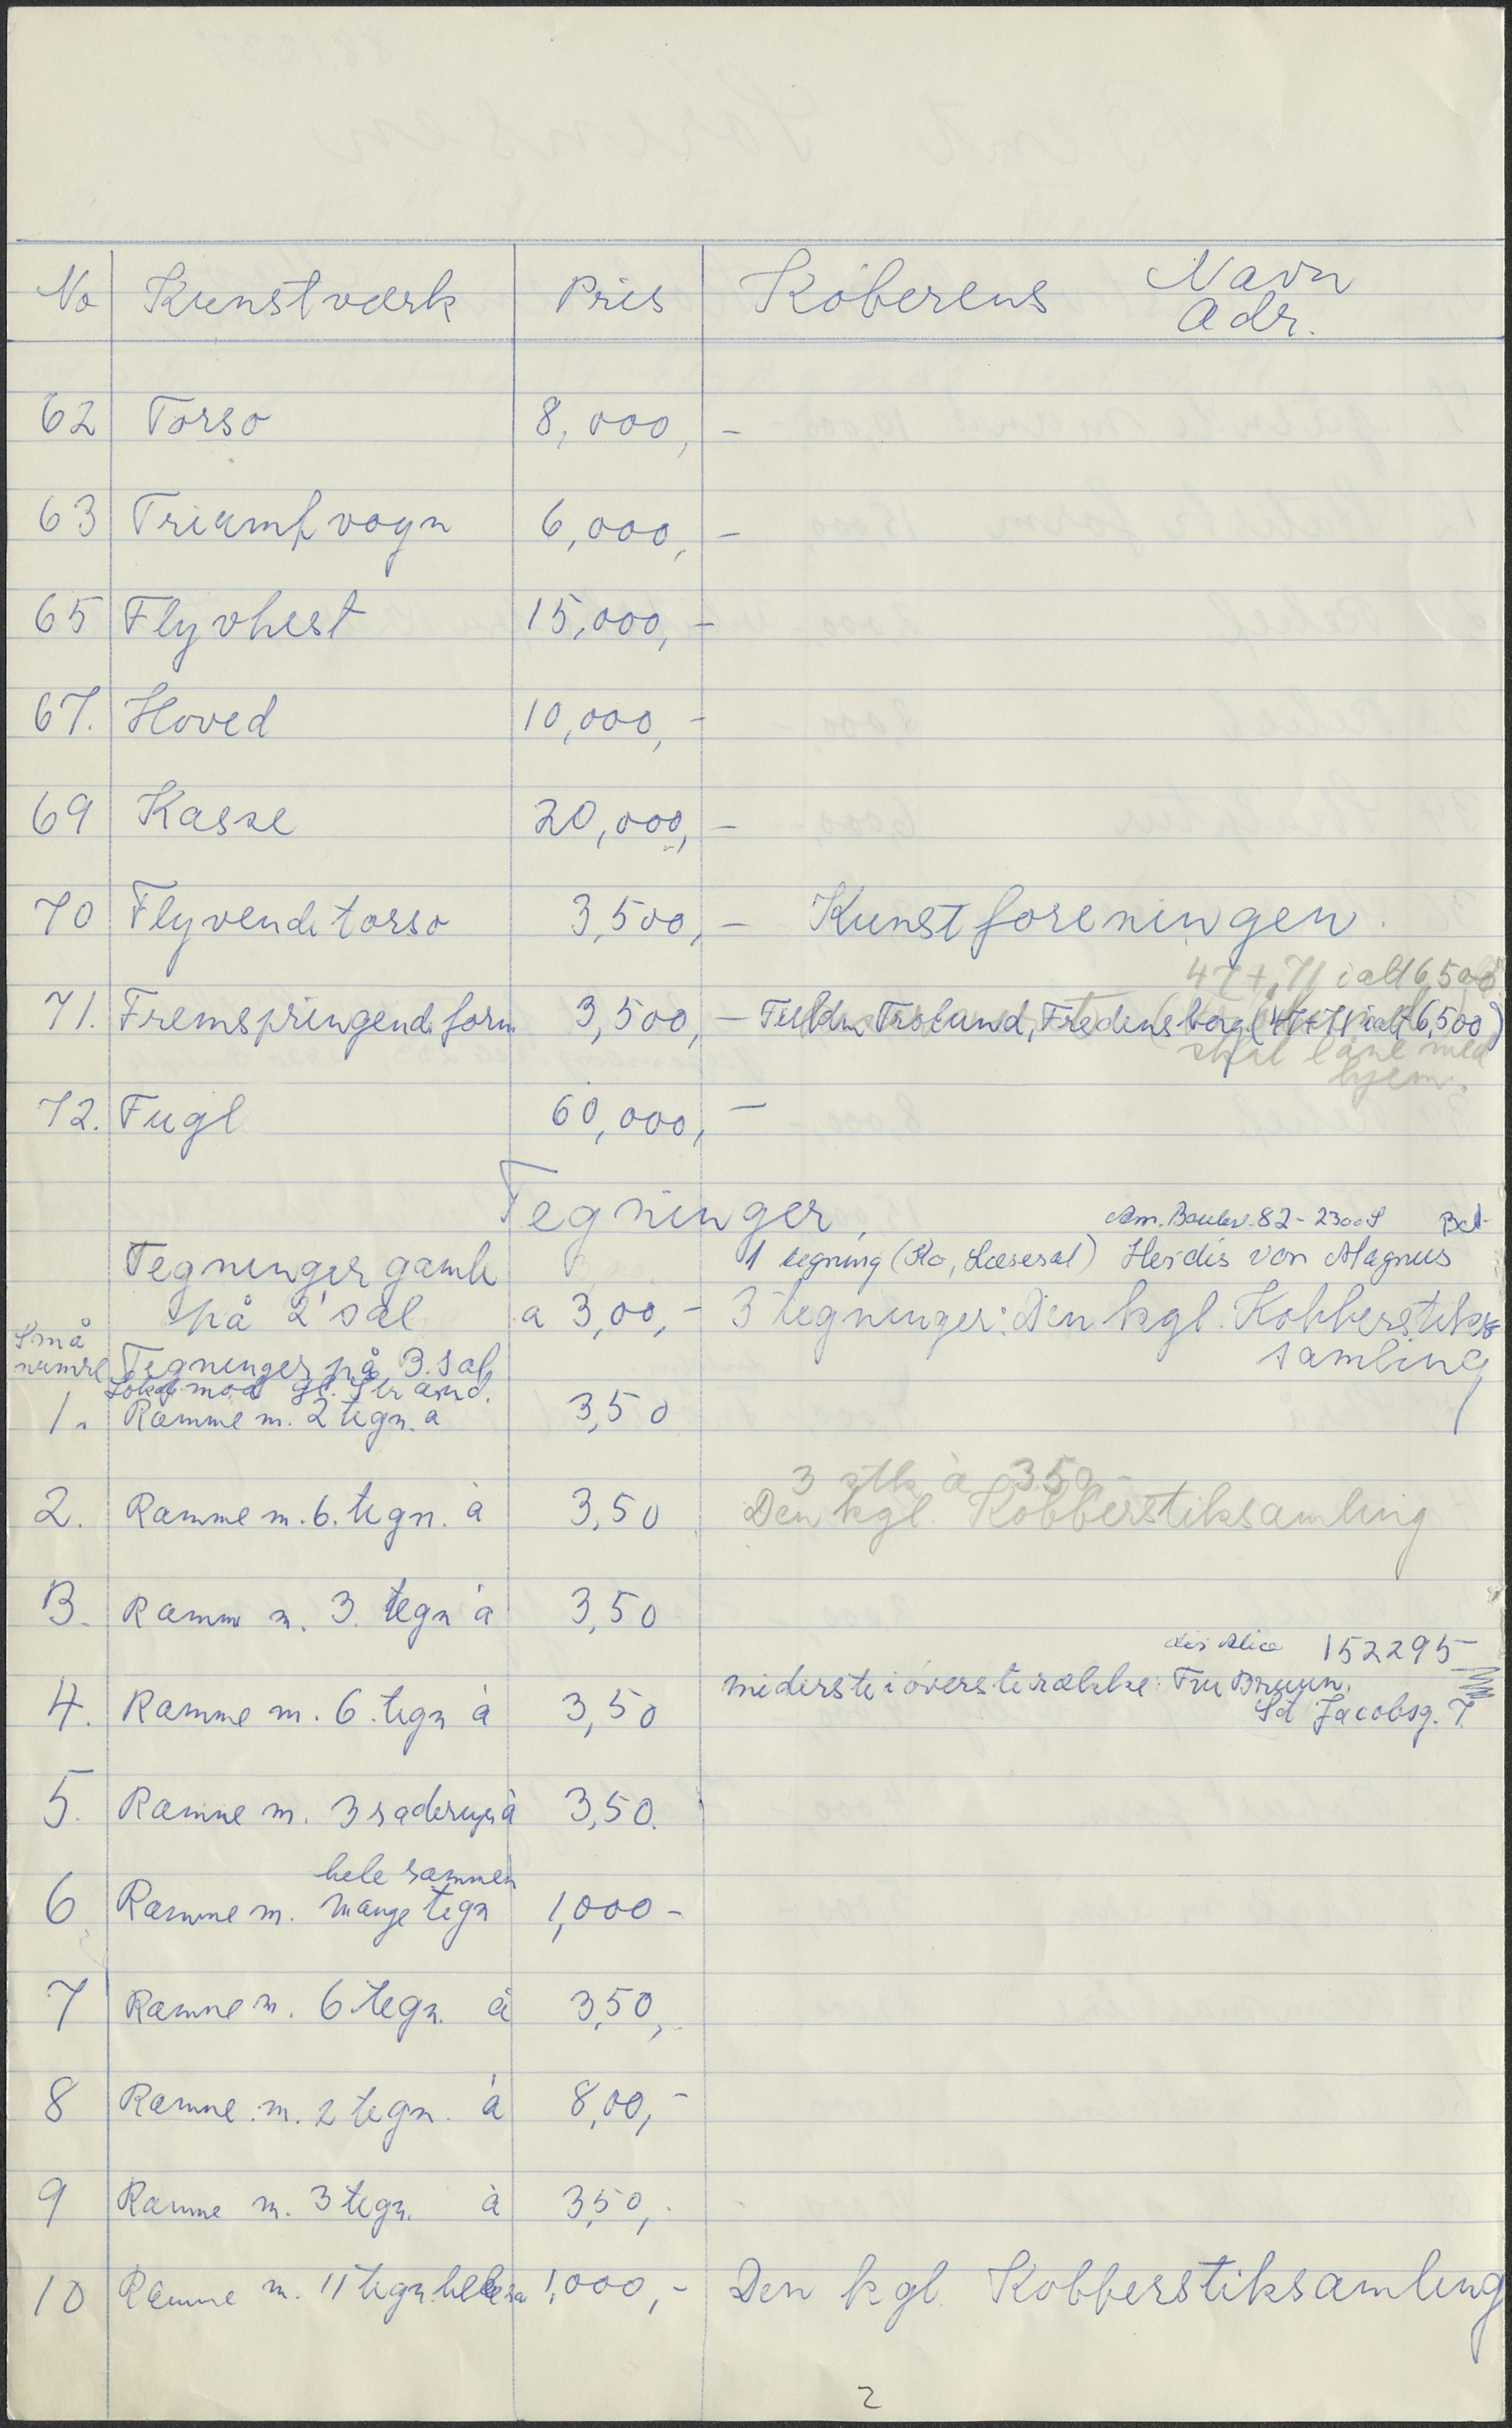 No Kunstværk Pris Køberens Navn
Adr.
62 Torso 8,000,-
63 Triumfvogn 6,000,-
65 Flyvhest 15,000,-
67. Hoved 10,000,-
69 Kasse 20,000,-
70 Flyvende torso 3,500,- Kunstforeningen.
47 + 71 ialt 6,500
71. Fremspringende form 3,500,- Fredensborg (47+71 ialt 6,500)
skal låne med
hjem.
72. Fugl 60,000,-
Tegninger,
Am. Boulev. 82 - 2300 S Bet.
Tegninger gamle 1 tegning (Ko, Læsesal) Herdis von Magnus
på 2' sal a 3,00,- 3 tegninger: Den kgl. Kobberstiks
samling
Små
numre Tegninger på 3. sal
Lokale mod gl. Strand.
1. Ramme m. 2 tegn. a 3,50
3 stk à 350
2. Ramme m. 6. tegn. à 3,50 Den kgl. Kobberstiksamling
3. Ramme m. 3. tegn à 3,50
152295
4. Ramme m. 6. tegn à 3,50 miderste i øverste række: Fru Bruun.
Sd Jacobsg. 7.
5. Ramme m. 3 raderinger à 3,50.
hele rammen
6 Ramme m. mange tegn 1,000 -
7 Ramme m. 6 tegn. à 3,50,-
8 Ramme. m. 2 tegn. à 8,00,-
9 Ramme m. 3 tegn. à 3,50,-
10 Ramme m. 11 tegn. hele ra 1,000,- Den kgl. Kobberstiksamling
2